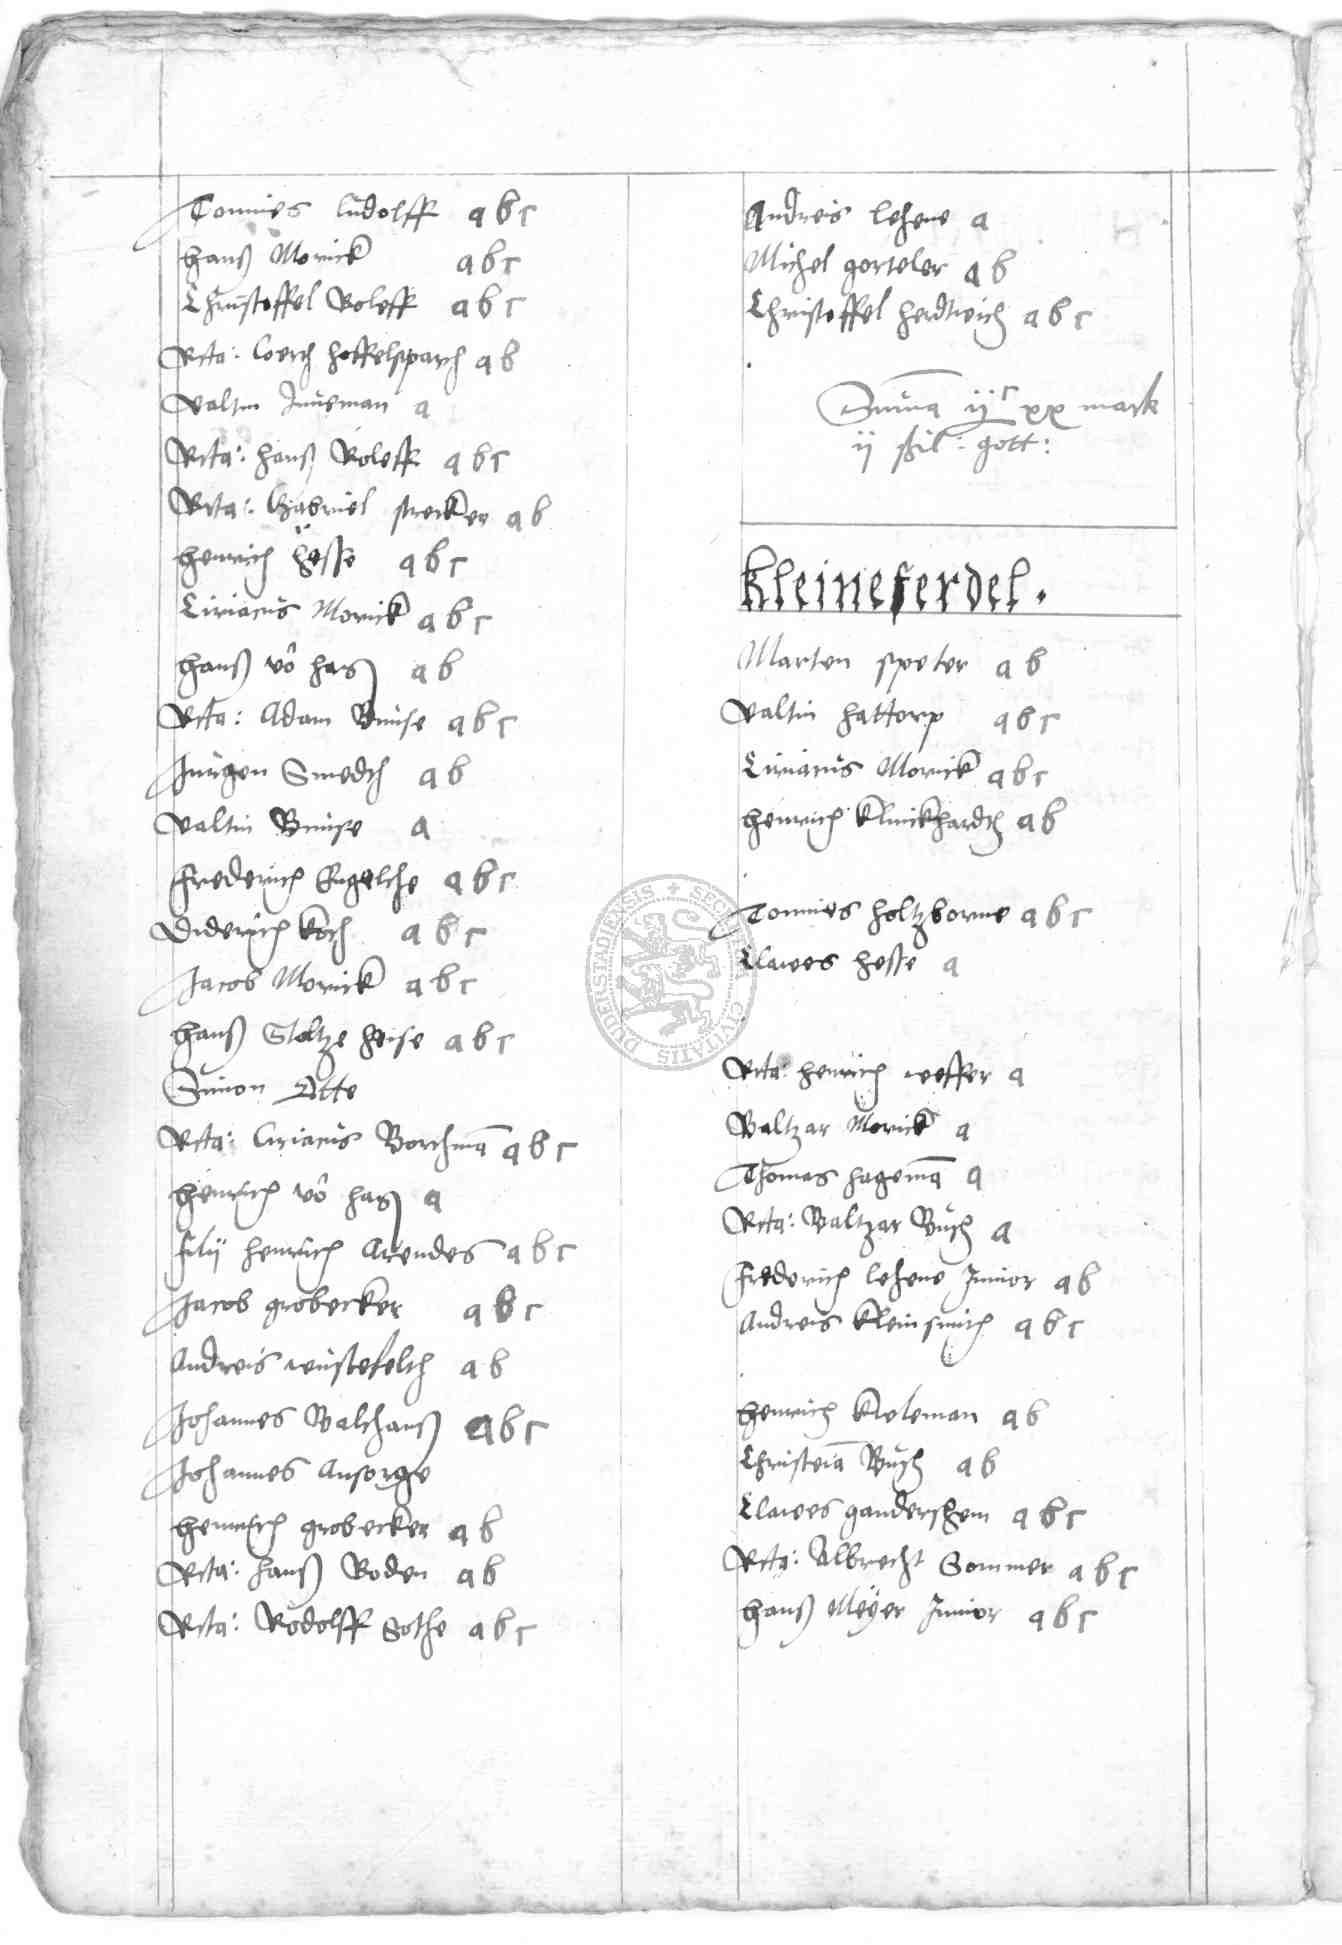 Tonnies Ludolff a b c
Hanß Morick a b c
Christoffel Roleff a b c
Rcta: Coerth Hoffelsparch a b
Valtin Juneman a
Rcta: Hanß Roleff a b c
Rcta: Gabriel strecker a b
Henrich Hesse a b c
Ciriacus Morick a b c
Hanß vô Hag a b
Rcta: Adam Bunse a b c
Jurgen Smedth a b
Valtin Bunse a
Frederich Engelche a b c
Diderich Koch a b c
Jacob Morick a b c
Hanß Stoltze Heise a b c
Simon Otte
Rcta: Ciriacus Borchmā a b c
Henrich vô Hag a
filij Henrich Arendes a b c
Jacob grobecker a b c
Andreis wustefelth a b
Johannes Balchauß a b c
Johannes Ansorge
Henrich grobecker a b
Rcta: Hanß Boden a b
Rcta: Rodolff Sothe a b c
Andreis Lehene a
Michel gorteler a b
Christoffel Herdtwich a b c
Suma ijc xx mark
ij ßil: gott:
Kleineferdel.
Marten speter a b
Valtin Hattorp a b c
Ciriacus Morick a b c
Henrich Klinckhardth a b
Tonnies Holtzborne a b c
Clawes Hesse a
Rcta: Henrich weffer a
Baltzar Morick a
Thomas Hagemā a
Rcta: Baltzar Busch a
Frederich Lehene Junior a b
Andreis Kleinsmith a b c
Henrich Kieleman a b
Christeiā Busch a b
Clawes gandershem a b c
Rcta: Albrecht Sommer a b c
Hanß Meÿer Junior a b c
SECRETVM CIVITATIS DUDERSTADIENSIS